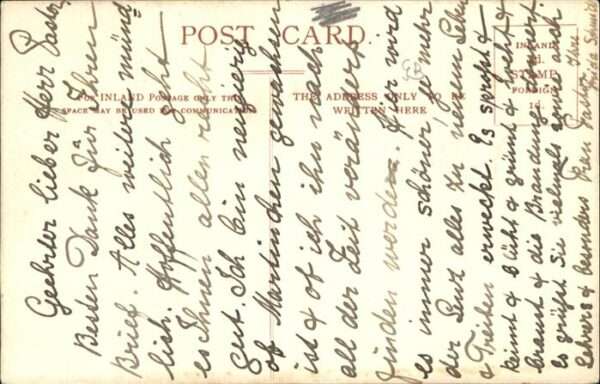 POST CARD.
FOR INLAND POSTAGE ONLY THIS
SPACE MAY BE USED FOR COMMUNICATION
THE ADDRESS ONLY TO BE
WRITTEN HERE
INLAND
½d.
STAMP
FOREIGN
1d.
Geehrter lieber Herr Pastor,
Besten Dank für Ihren
Brief. Alles weitere münd
lich. Hoffentlich geht
es Ihnen allen recht
gut. Ich bin neugierig
ob Martinchen gewachsen
ist & ob ich ihn nach
all der Zeit verändert
finden werde. Hier wird
es immer schöner, je mehr
der Lenz alles zu neuem Leben
& Treiben erweckt. Es sprosst &
keimt & blüht & grünt & weht &
braust & die Brandung
es grüsst Sie vielmals
& besonders Frau Pastor Ihre